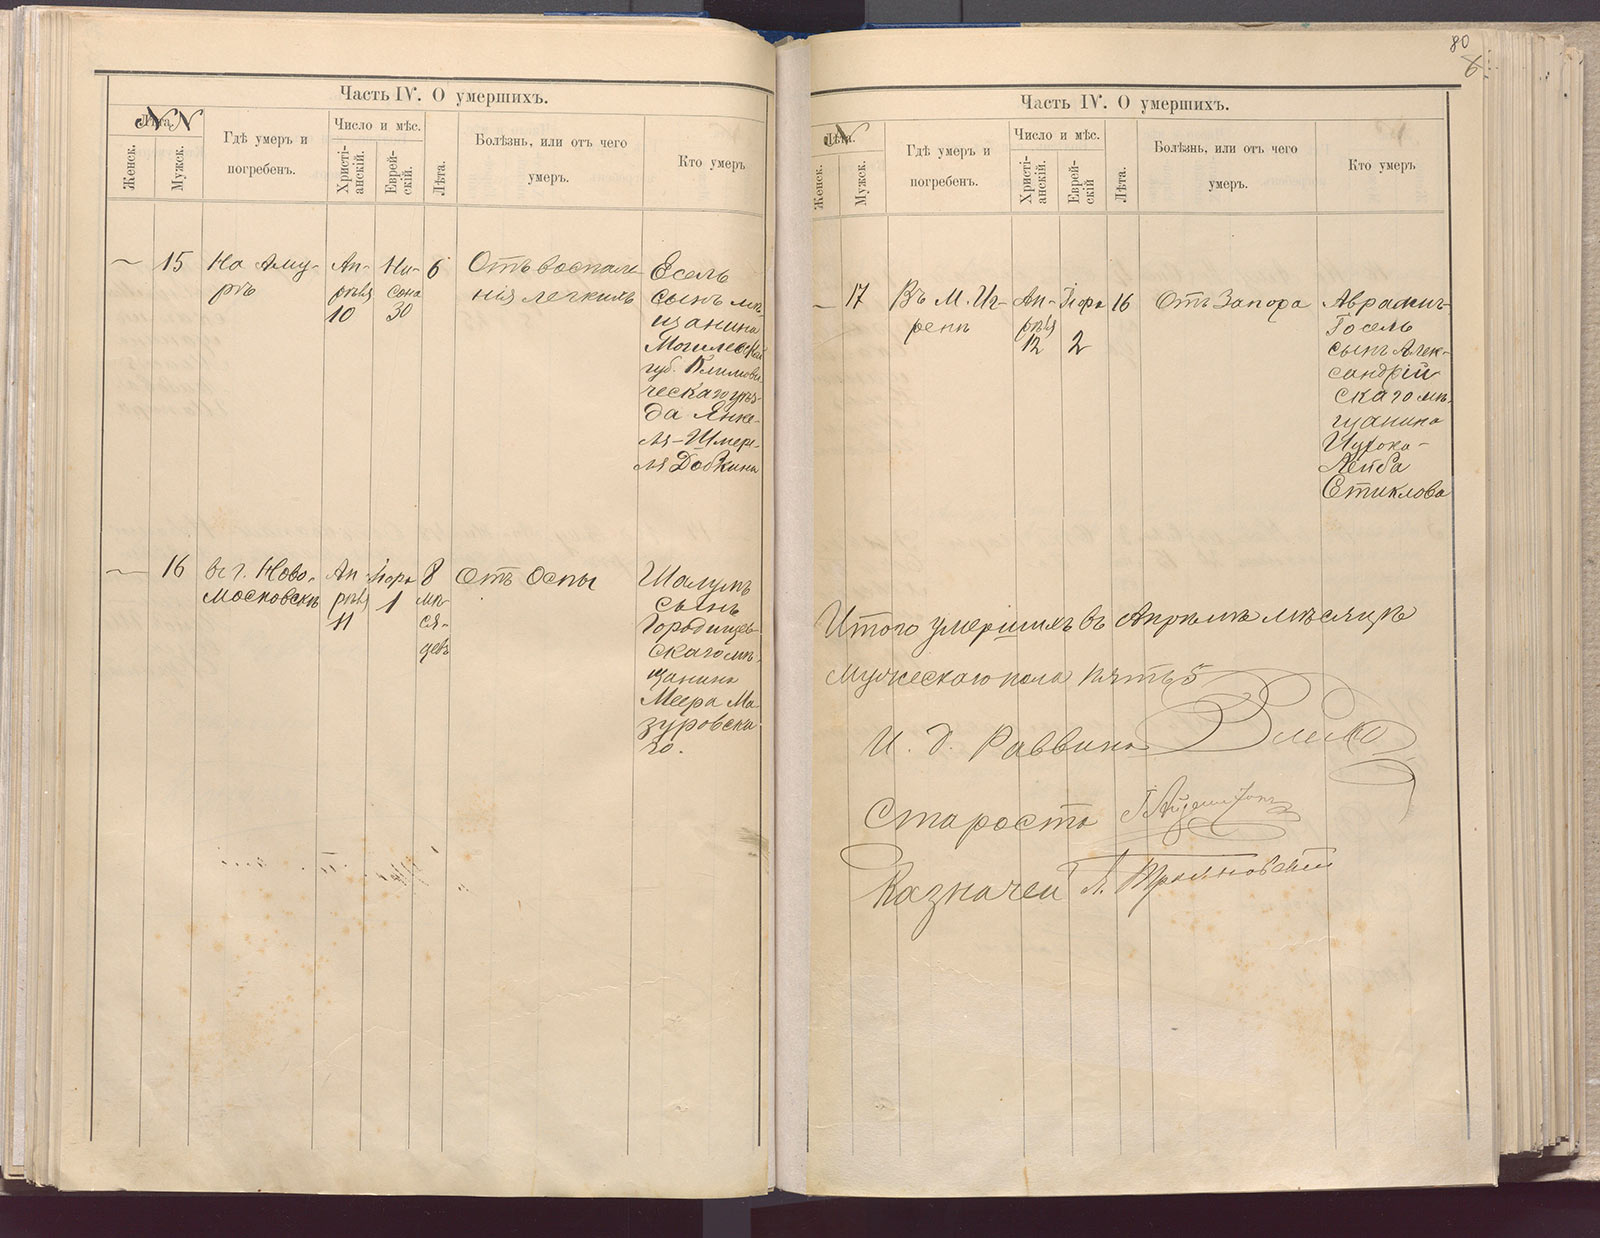 Часть IV. О умершихъ.
Лѣта.
N N
Женск.
Мужск.
Гдѣ умеръ и
погребенъ.
Число и мѣс.
Христі-
анскій.
Еврей-
скій.
Лѣта.
Болѣзнь, или отъ чего
умеръ.
Кто умеръ
15
На Аму-
рѣ
Ап-
рѣля
10
Ни-
сона
30
6
Отъ воспале
нія легкихъ
Есель
сынъ мѣ-
щанина
Могилевской
губ. Климови
ческаго уѣз-
да Янке-
ля-Шмере-
ля Добкина
16
въ г. Ново-
московскѣ
Ап-
рѣля
11
Іора
1
8
мѣ-
ся-
цевъ
Отъ Оспы
Шалумъ
сынъ
Городищев-
скаго мѣ-
щанина
Меера Ма-
зуровска-
го.
80
Часть IV. О умершихъ.
Лѣта.
N
Женск.
Мужск.
Гдѣ умеръ и
погребенъ.
Число и мѣс.
Христі-
анскій.
Еврей-
скій
Лѣта.
Болѣзнь, или отъ чего
умеръ.
Кто умеръ
17
Въ М. Иг-
рени
Ап-
рѣля
12
Іора
2
16
Отъ Запора
Авраамъ-
Госель
сынъ Алек-
сандрій
скаго мѣ-
щанина
Ицхока-
Лейба
Стиклова
Итого умершихъ въ Апрѣлѣ мѣсяцѣ
мужескаго пола пять 5
И. д. Раввина
Староста
Казначей